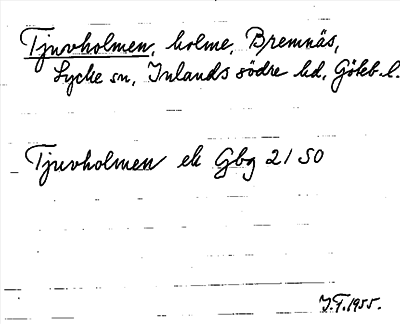 Tjuvholmen, holme, Bremnäs,
Lycke sn, Inlands södre hd, Göteb. l.
Tjuvholmen ek Gbg 21 SO
J.F. 1955.